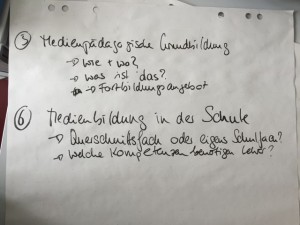 ⑤ Medienpädagogische Grundbildung
→ wie + wo?
→ was ist das?
→ Fortbildungsangebot
⑥ Medienbildung in der Schule
→ Querschnittsfach oder eigens Schulfach?
→ Welche Kompetenzen benötigen Lehrer?